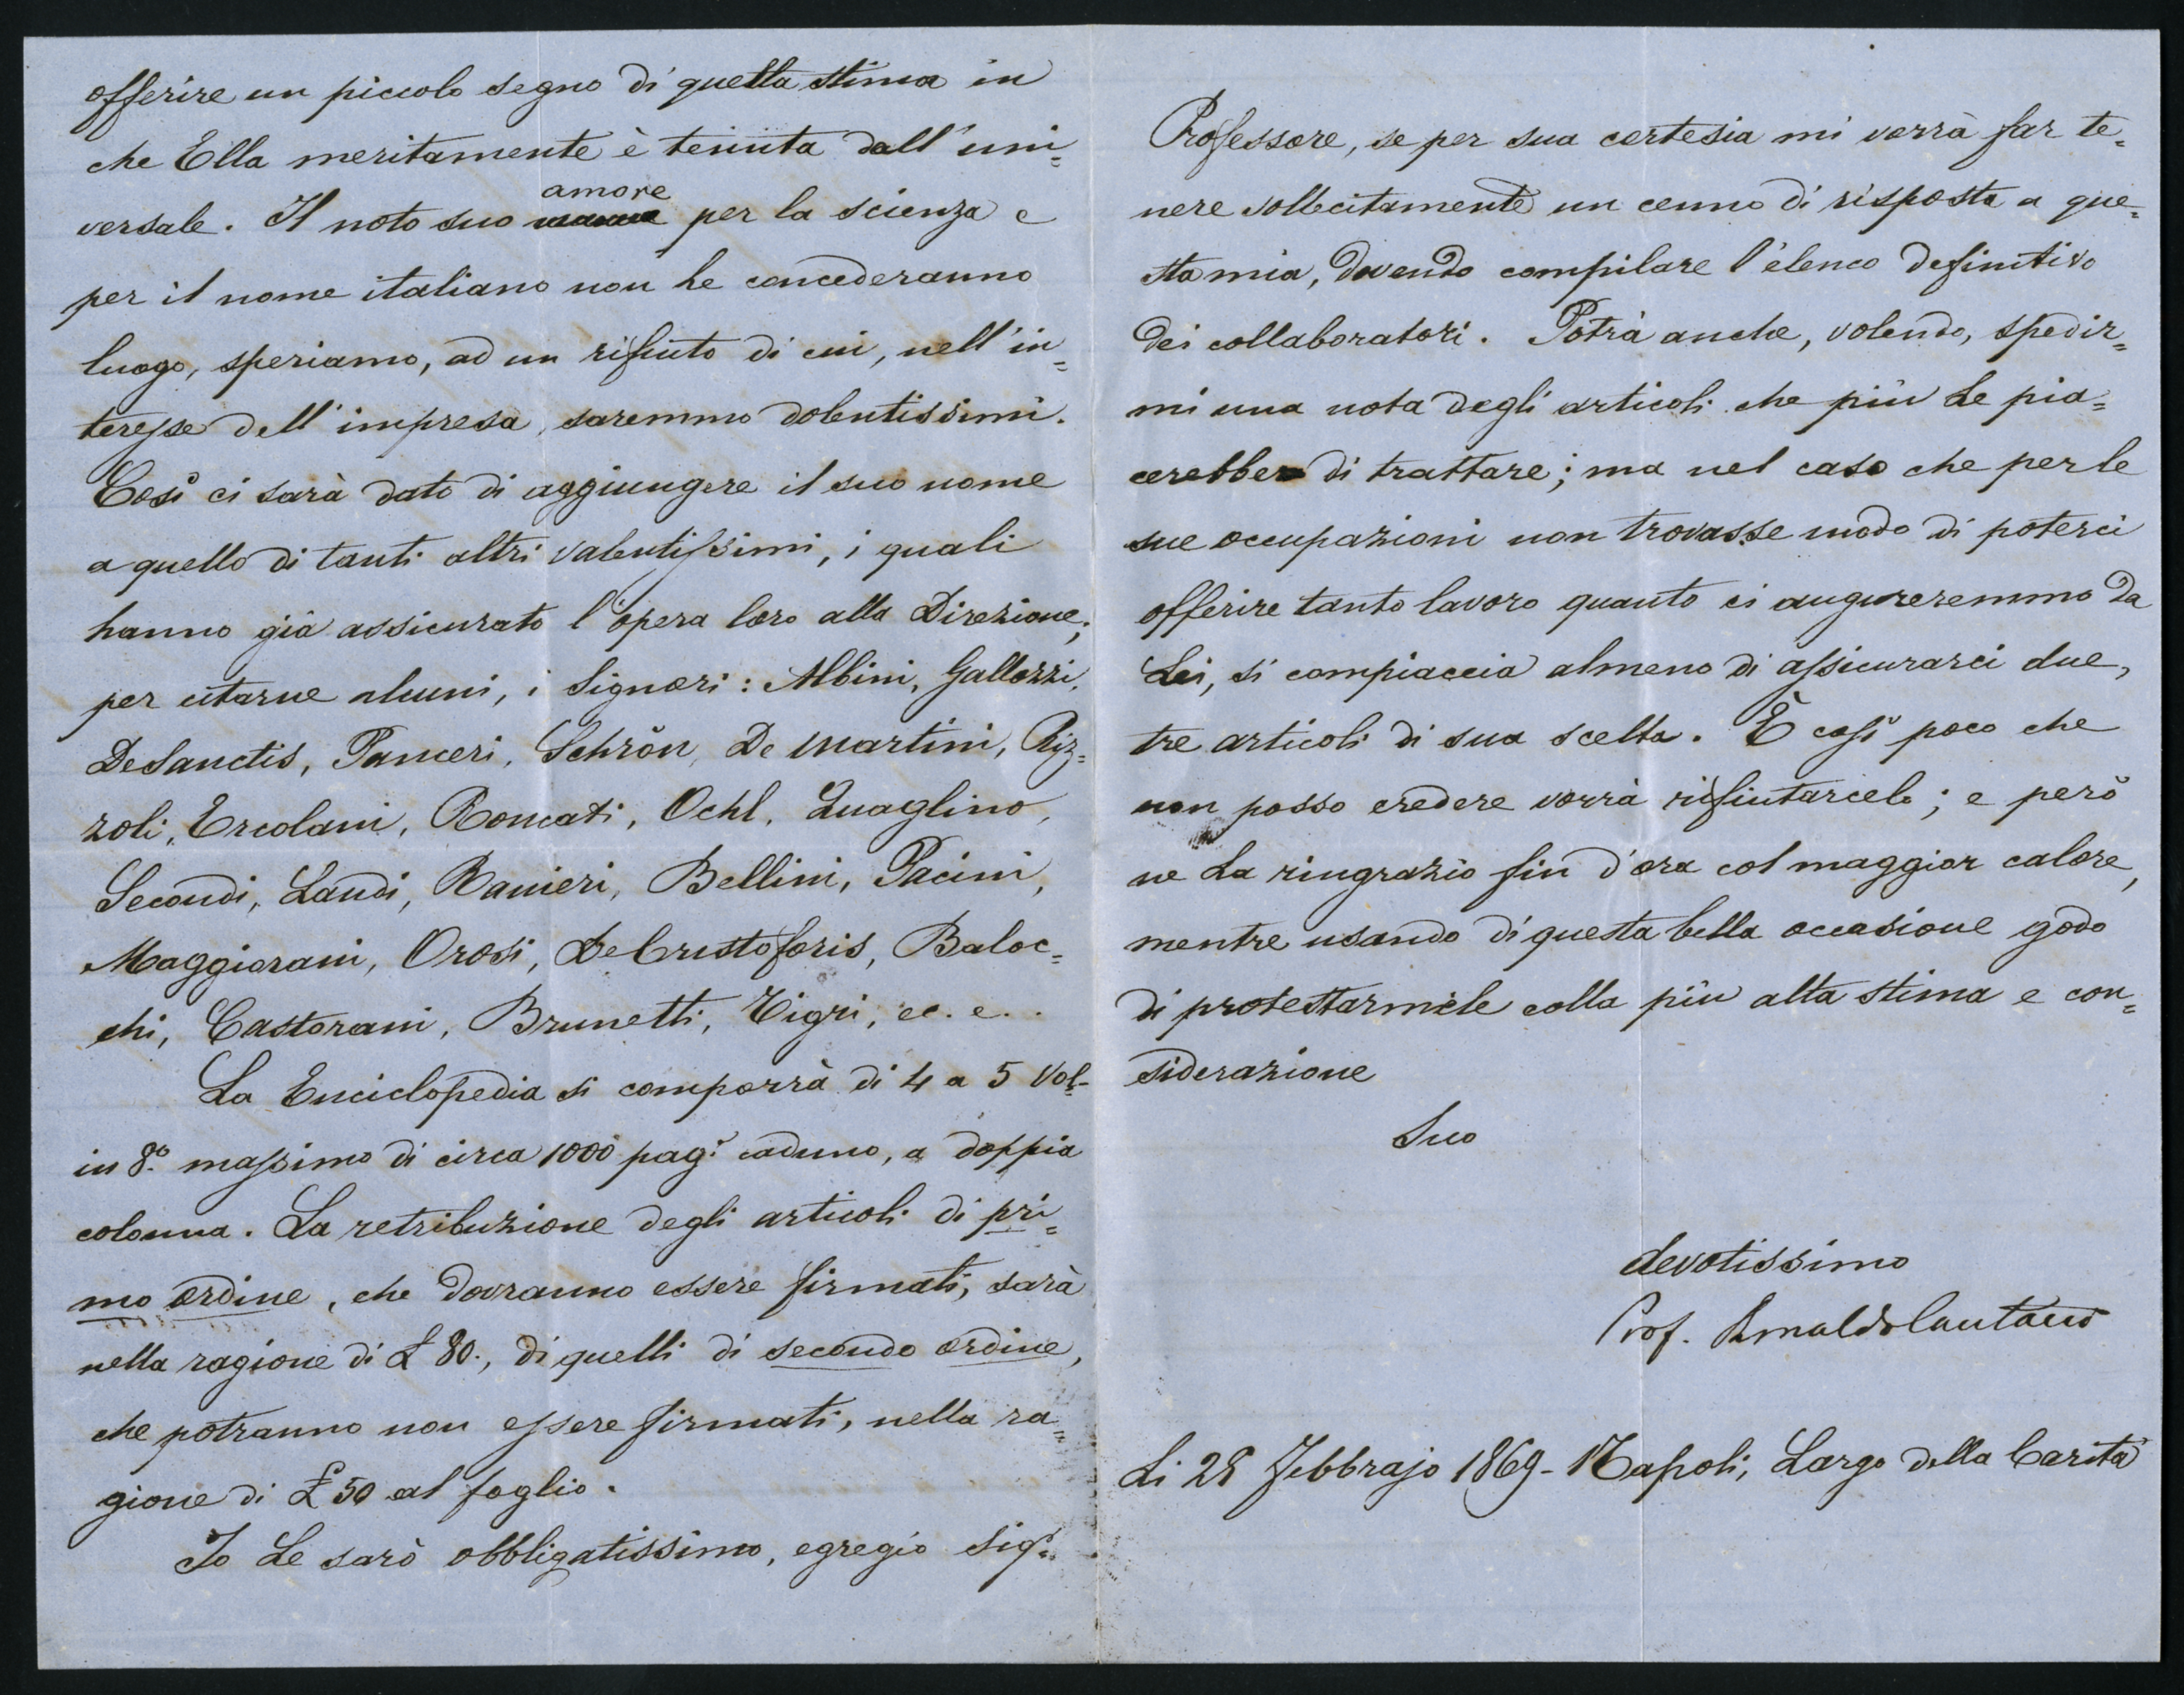 offerire un piccolo segno di quella stima in
che Ella meritamente è tenuta dall'uni=
versale. Il noto suo amore per la scienza e
per il nome italiano non le concederanno
luogo, speriamo, ad un rifiuto di cui, nell'in=
teresse dell'impresa, saremmo dolentissimi.
Così ci sarà dato di aggiungere il suo nome
a quello di tanti altri valentissimi, i quali
hanno già assicurato l'opera loro alla Direzione;
per citarne alcuni, i Signori: Albini, Gallozzi,
De Sanctis, Panceri, Schrön, De Martini, Riz=
zoli, Ercolani, Roncati, Oehl, Quaglino,
Secondi, Landi, Ranieri, Bellini, Pacini,
Maggiorani, Orosi, De Cristoforis, Baloc=
chi, Castorani, Brunetti, Tigri, ec. e..
La Enciclopedia si comporrà di 4 a 5 Vol.
in 8.º massimo di circa 1000 pag.i caduno, a doppia
colonna. La retribuzione degli articoli di pri=
mo ordine, che dovranno essere firmati, sarà
nella ragione di £ 80., di quelli di secondo ordine,
che potranno non essere firmati, nella ra=
gione di £ 50 al foglio.
Io Le sarò obbligatissimo, egregio Sig.r
Professore, se per sua cortesia mi vorrà far te=
nere sollecitamente un cenno di risposta a que=
sta mia, dovendo compilare l'elenco definitivo
dei collaboratori. Potrà anche, volendo, spedir=
mi una nota degli articoli che più Le pia=
cerebbe di trattare; ma nel caso che per le
sue occupazioni non trovasse modo di poterci
offerire tanto lavoro quanto ci augureremmo da
Lei, si compiaccia almeno di assicurarci due,
tre articoli di sua scelta. È così poco che
non posso credere vorrà rifiutarcelo; e però
ne La ringrazio fin d'ora col maggior calore,
mentre usando di questa bella occasione godo
di protestarmele colla più alta stima e con=
siderazione
Suo
devotissimo
Prof. Arnaldo Cantani
Li 28 Febbrajo 1869 - Napoli, Largo della Carità